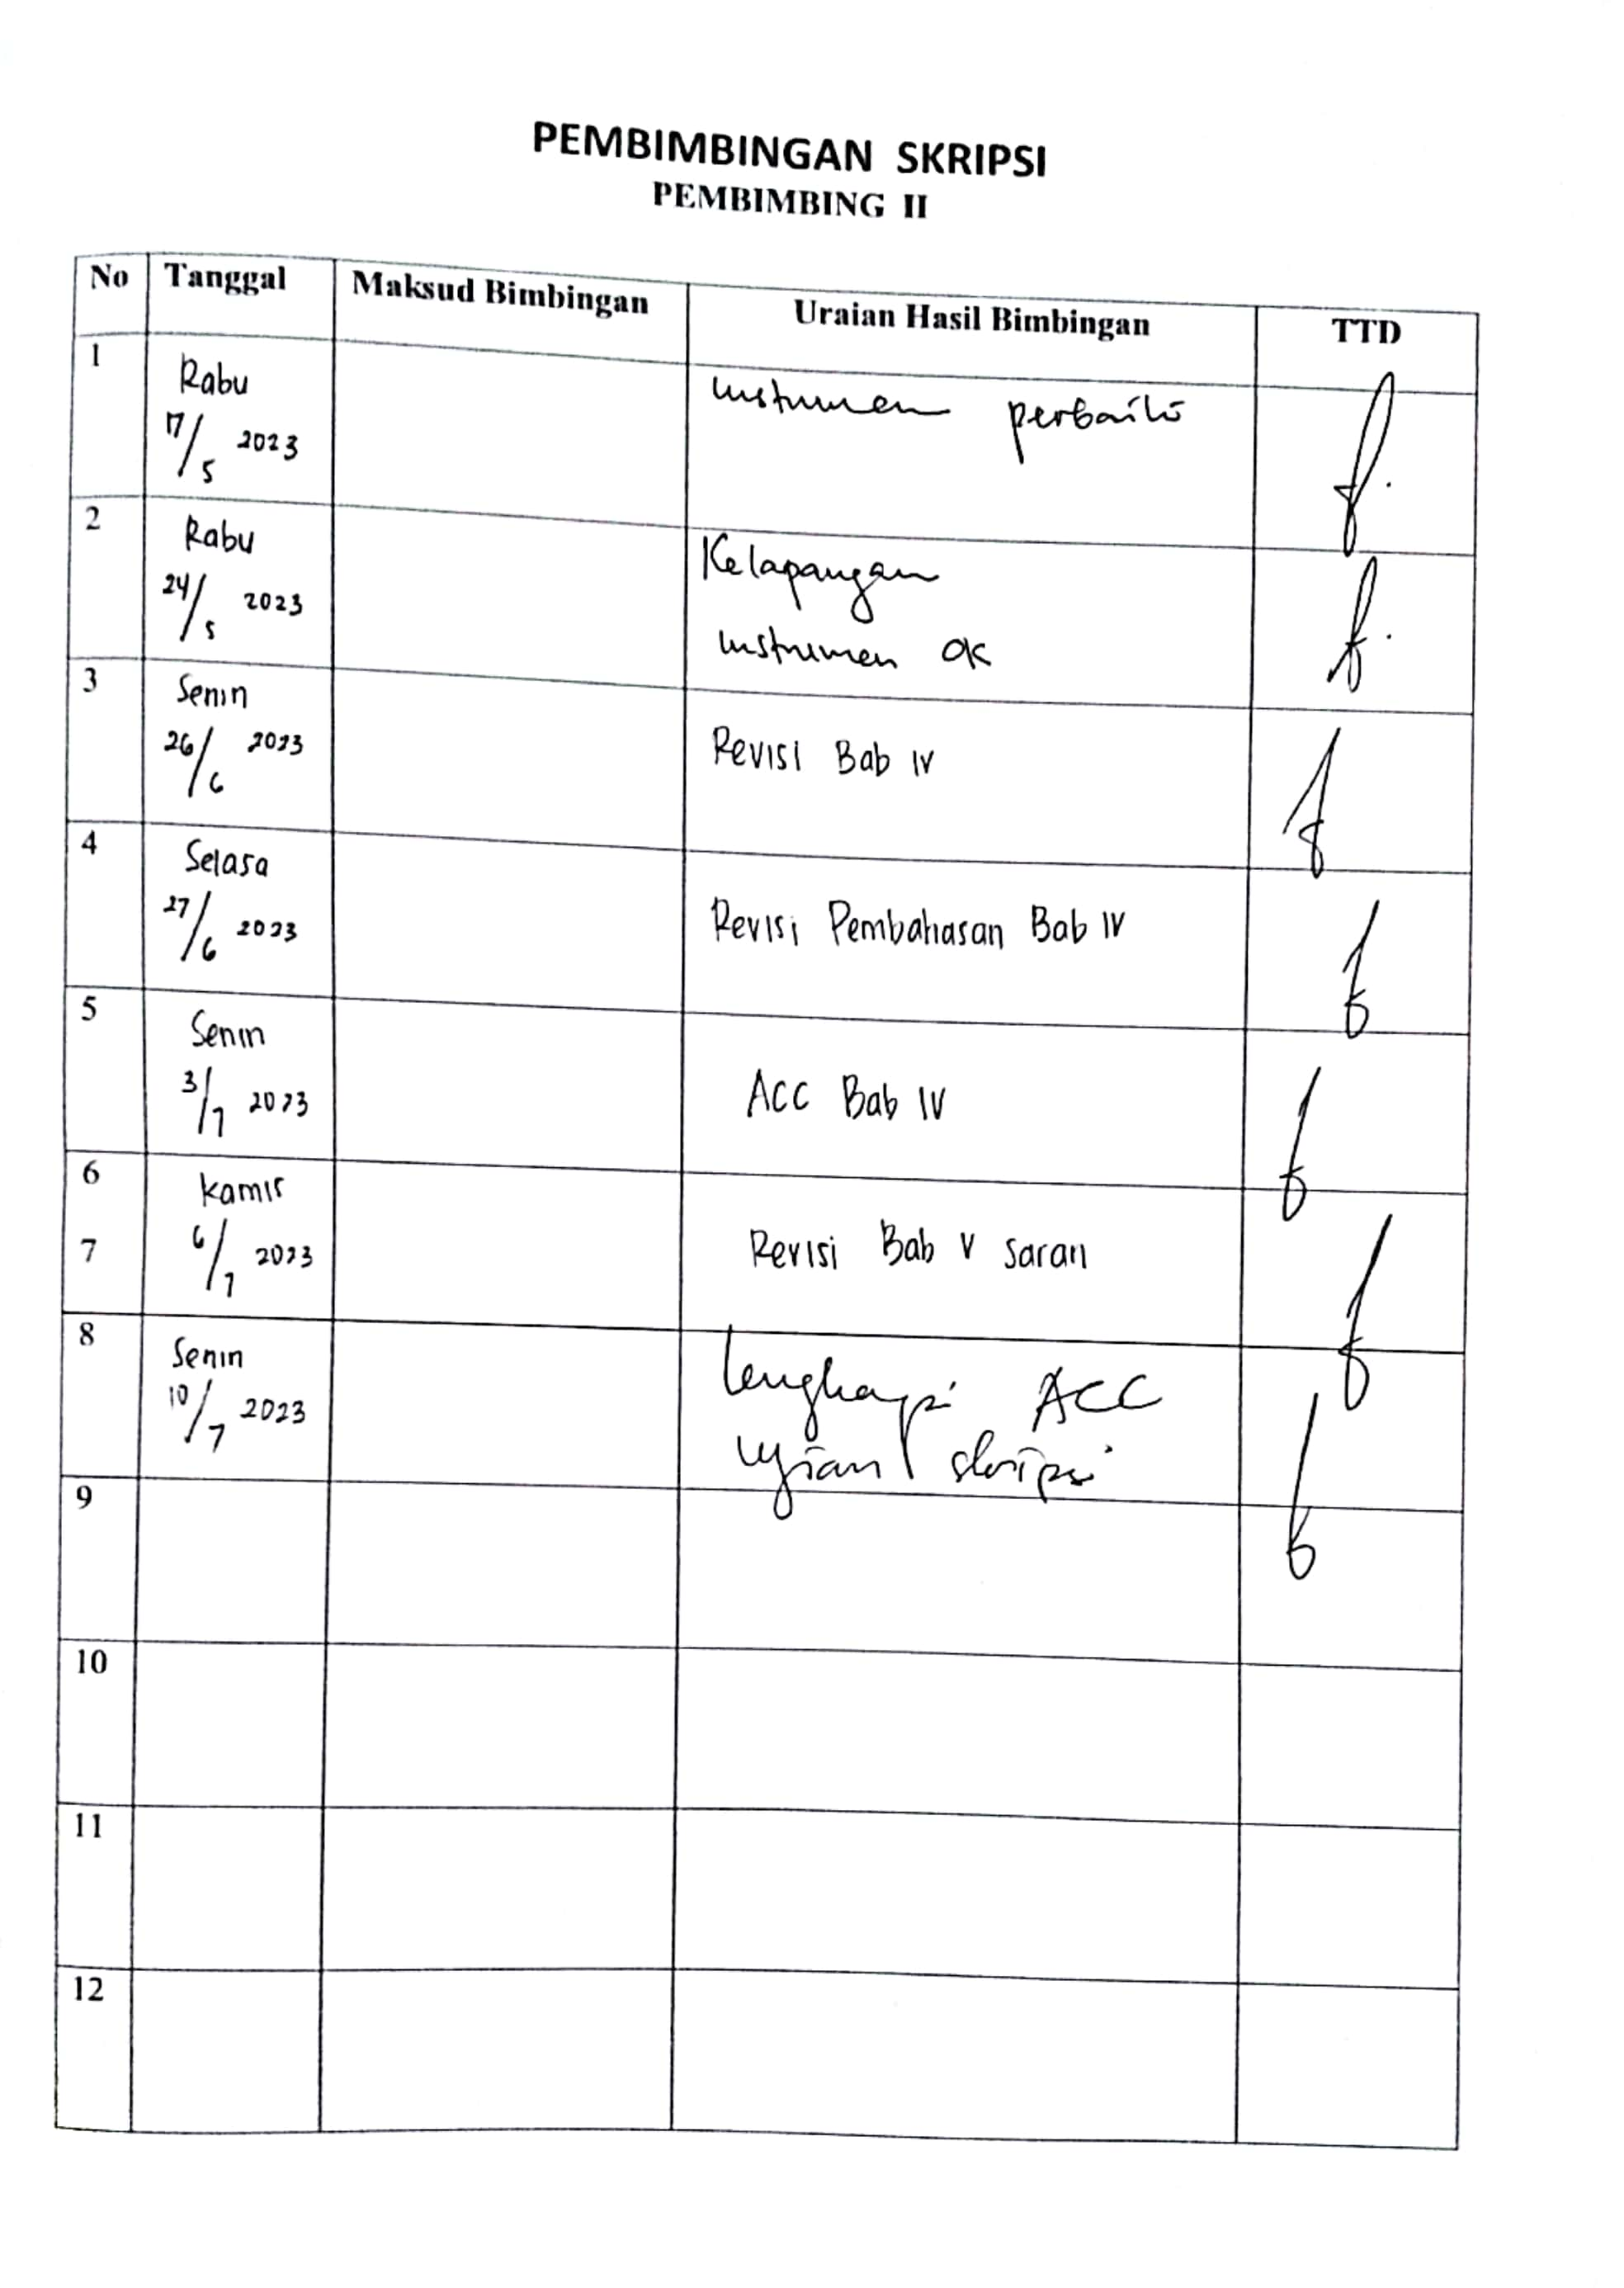 PEMBIMBINGAN SKRIPSI
PEMBIMBING II
No Tanggal Maksud Bimbingan Uraian Hasil Bimbingan TTD
1 Rabu Instrumen perbaiki
17/5 2023
2 Rabu Kelapangan
24/5 2023 Instrumen OK
3 Senin
26/6 2023 Revisi Bab IV
4 Selasa
27/6 2023 Revisi Pembahasan Bab IV
5 Senin
3/7 2023 ACC Bab IV
6 Kamis
7 6/7 2023 Revisi Bab V saran
8 Senin Lengkapi ACC
10/7 2023 ujian skripsi
9
10
11
12